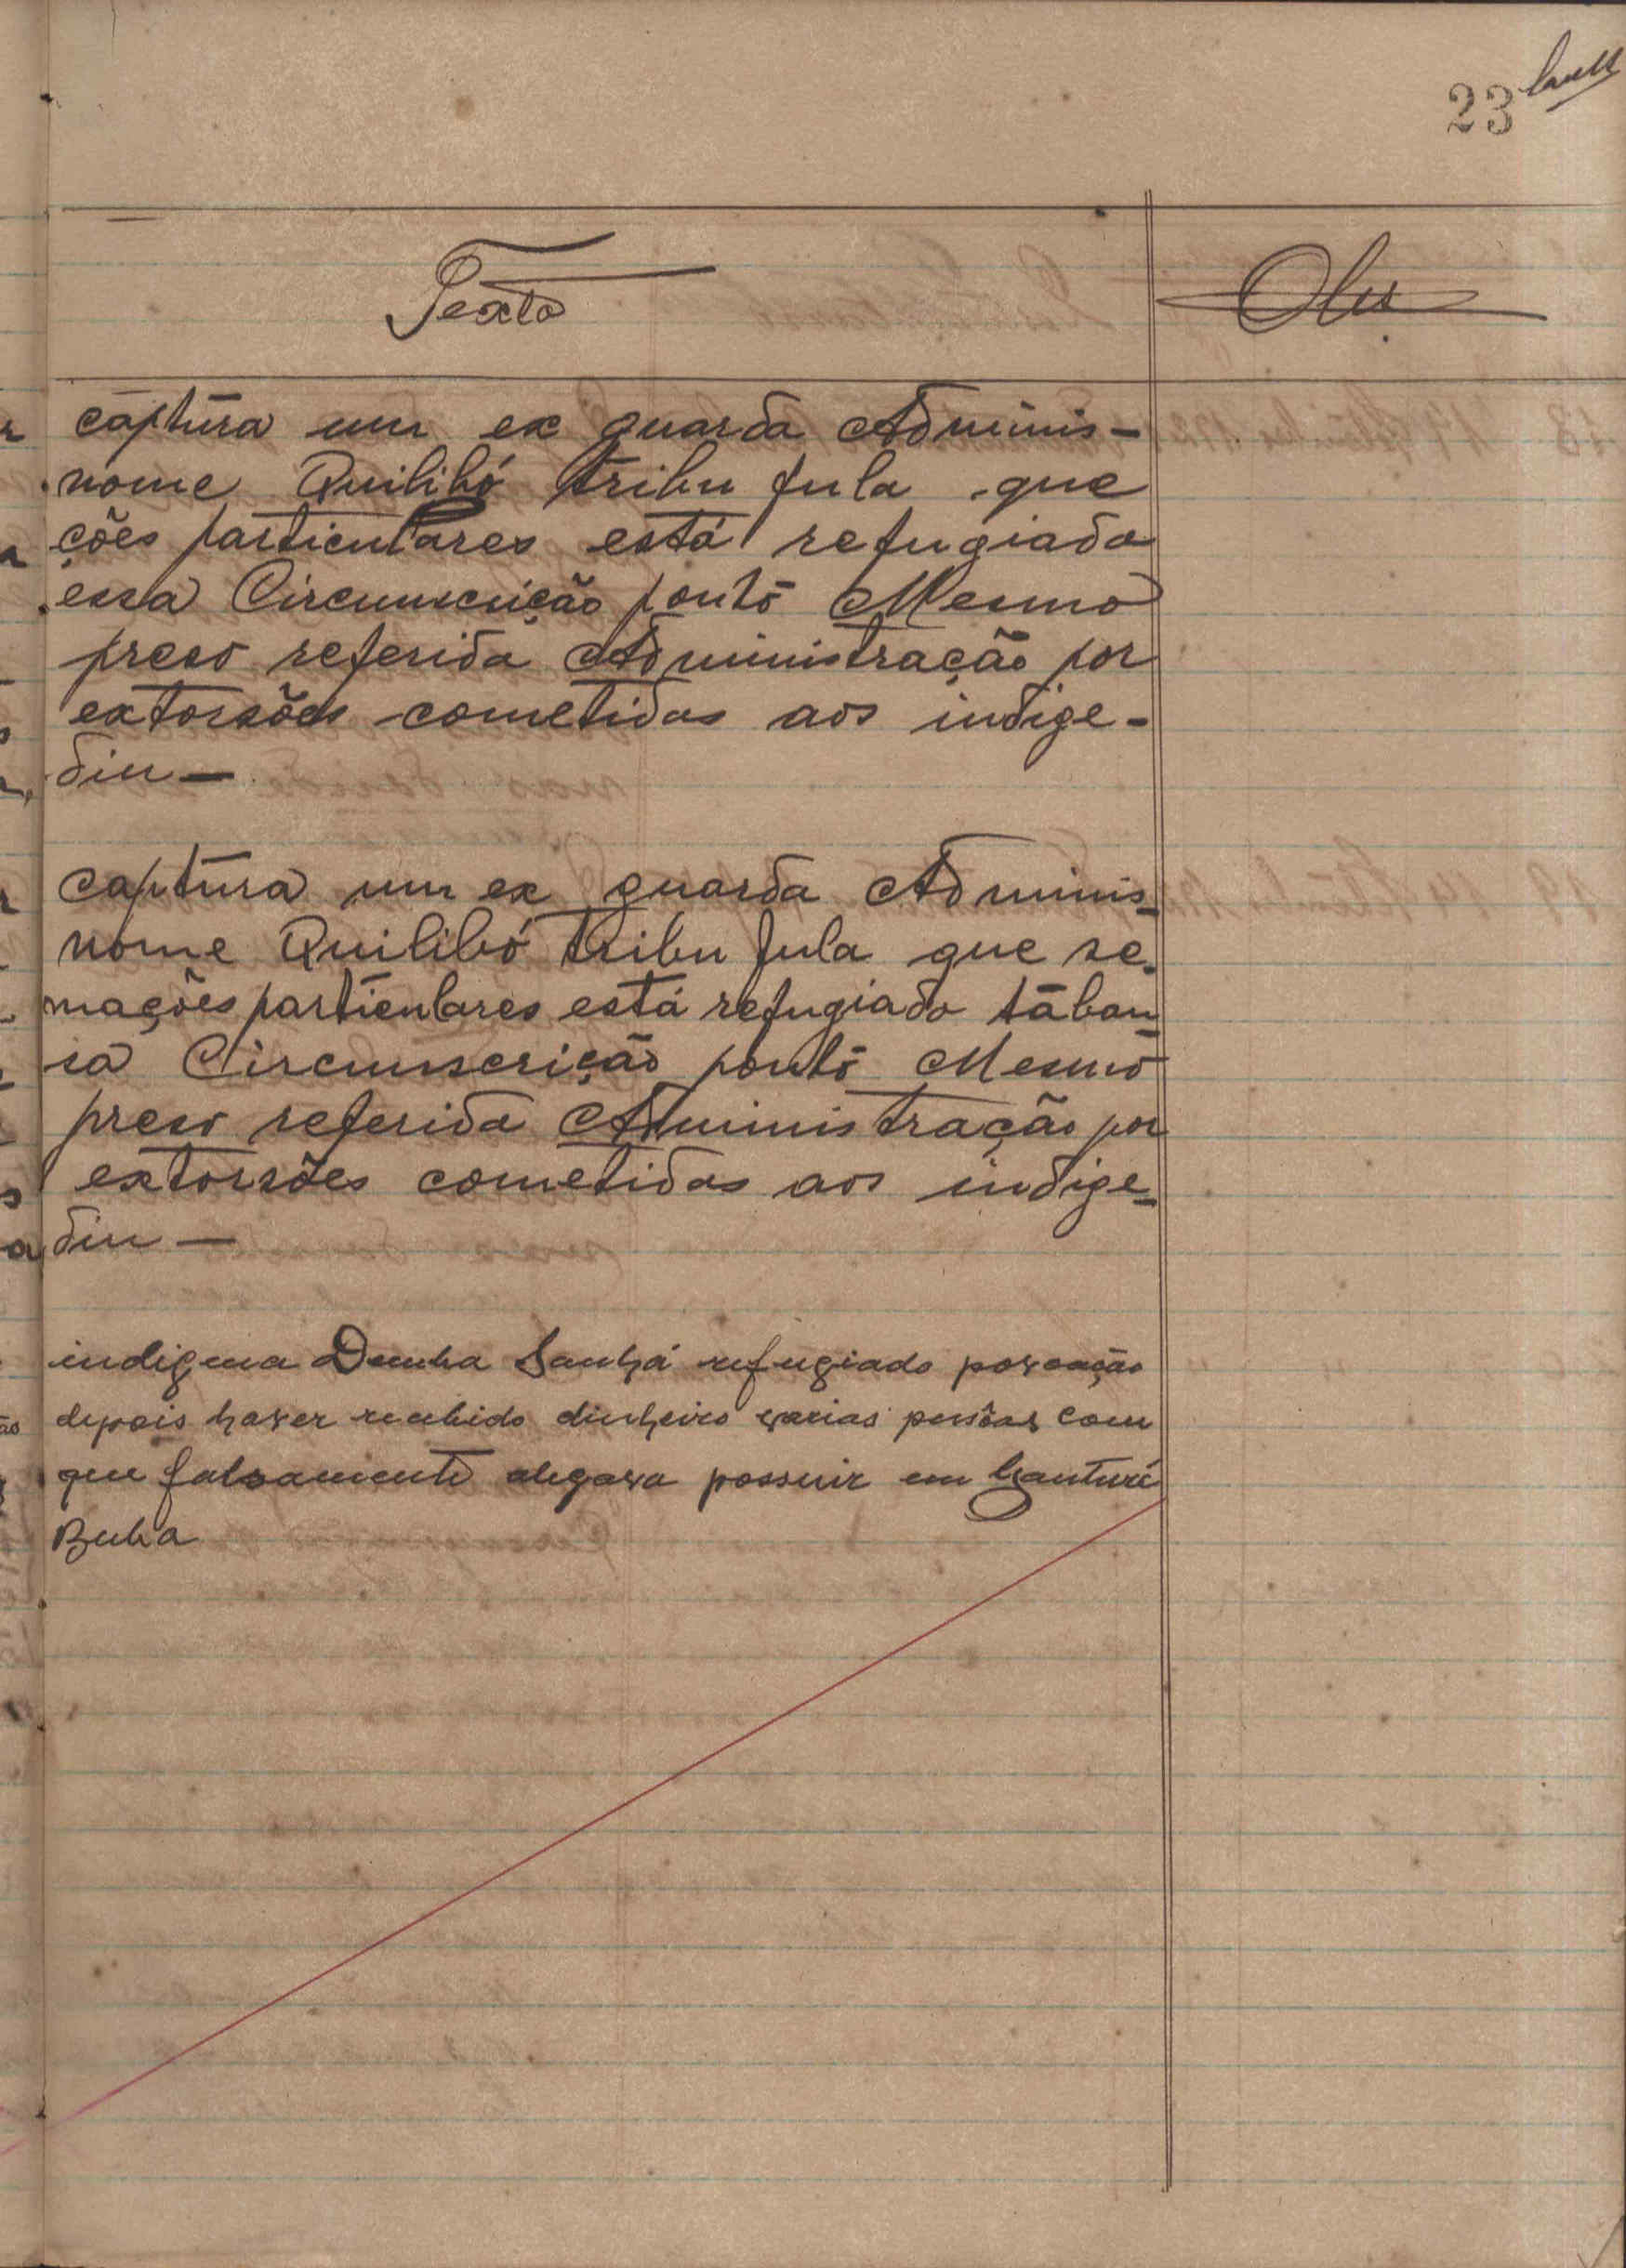 23
Texto
Obs.
captura um ex guarda Adminis-
nome Quilibó tribu fula que
ções particulares está refugiado
essa Circunscrição ponto Mesmo
preso referida Administração por
extorsões cometidas aos indige-
din—
captura um ex guarda Adminis-
nome Quilibó tribu fula que se-
mações particulares está refugiado taban
sa Circunscrição ponto Mesmo
preso referida Administração por
extorsões cometidas aos indige-
din—
indigena Demba Sanhá refugiado povoação
depois haver recebido dinheiro varias pessoas com
que falsamente alegava possuir em
Buba